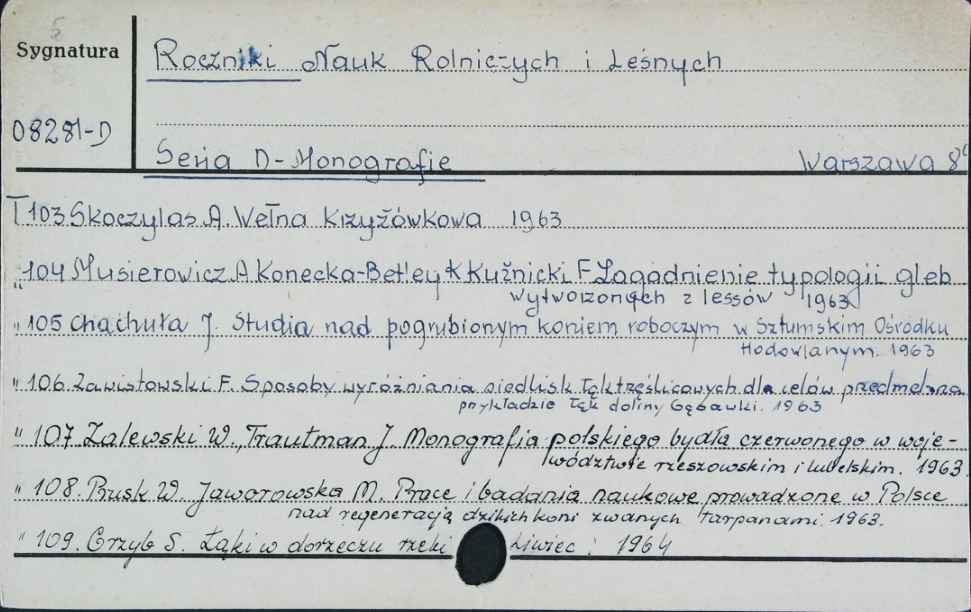 5
Sygnatura
Roczniki Nauk Rolniczych i Leśnych
08281-D
Seria D-Monografie Warszawa 8°
T103 Skoczylas A. Wełna krzyżówkowa 1963
" 104 Musierowicz A Konecka-Betley K Kuźnicki F Zagadnienie typologii gleb
wytworzonych z lessów 1963
" 105 Chachuła J. Studia nad pogrubionym koniem roboczym w Sztumskim Ośrodku
Hodowlanym. 1963
" 106 Zawistowski F. Sposoby wyróżniania siedlisk łąk trzęślicowych dla celów
przykładzie łąk doliny Gąsawki. 1963
" 107 Zalewski W., Trautman J. Monografia polskiego bydła czerwonego w woje-
wództwie rzeszowskim i lubelskim. 1963
" 108. Pruski W. Jaworowska M. Prace i badania naukowe prowadzone w Polsce
nad regeneracją dzikich koni zwanych tarpanami. 1963.
" 109. Grzyb S. Łąki w dorzeczu rzeki Liwiec. 1964